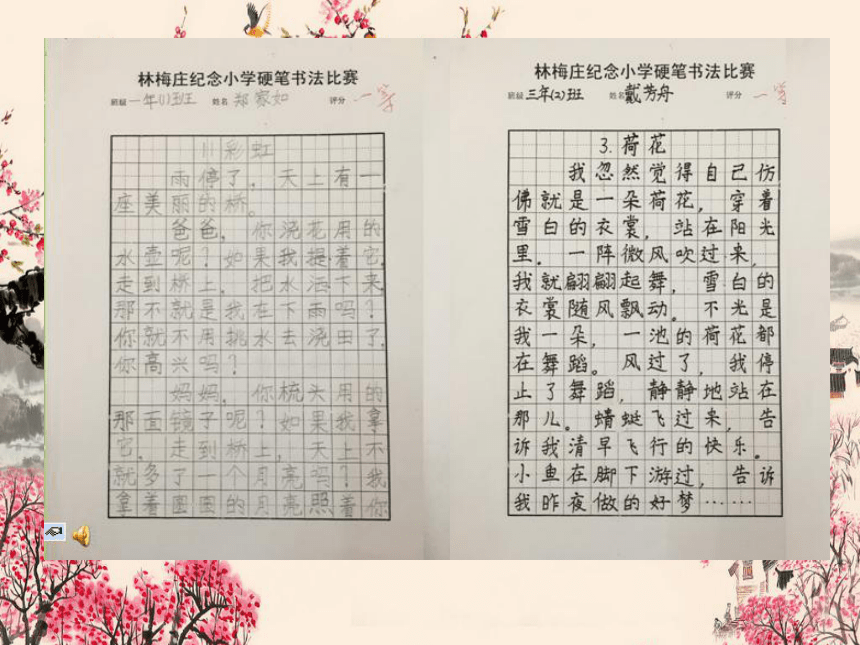 林梅庄纪念小学硬笔书法比赛
班级 一年(1)班 姓名 郑家如 评分 一等
11彩虹
雨停了，天上有一
座美丽的桥。
爸爸，你浇花用的
水壶呢？如果我提着它，
走到桥上，把水洒下来，
那不就是我在下雨吗？
你就不用挑水去浇田了，
你高兴吗？
妈妈，你梳头用的
那面镜子呢？如果我拿
它，走到桥上，天上不
就多了一个月亮吗？我
拿着圆圆的月亮照着你
林梅庄纪念小学硬笔书法比赛
班级 三年(2)班 姓名 戴芳舟 评分 一等
3.荷花
我忽然觉得自己仿
佛就是一朵荷花，穿着
雪白的衣裳，站在阳光
里。一阵微风吹过来，
我就翩翩起舞，雪白的
衣裳随风飘动。不光是
我一朵，一池的荷花都
在舞蹈。风过了，我停
止了舞蹈，静静地站在
那儿。蜻蜓飞过来，告
诉我清早飞行的快乐。
小鱼在脚下游过，告诉
我昨夜做的好梦……